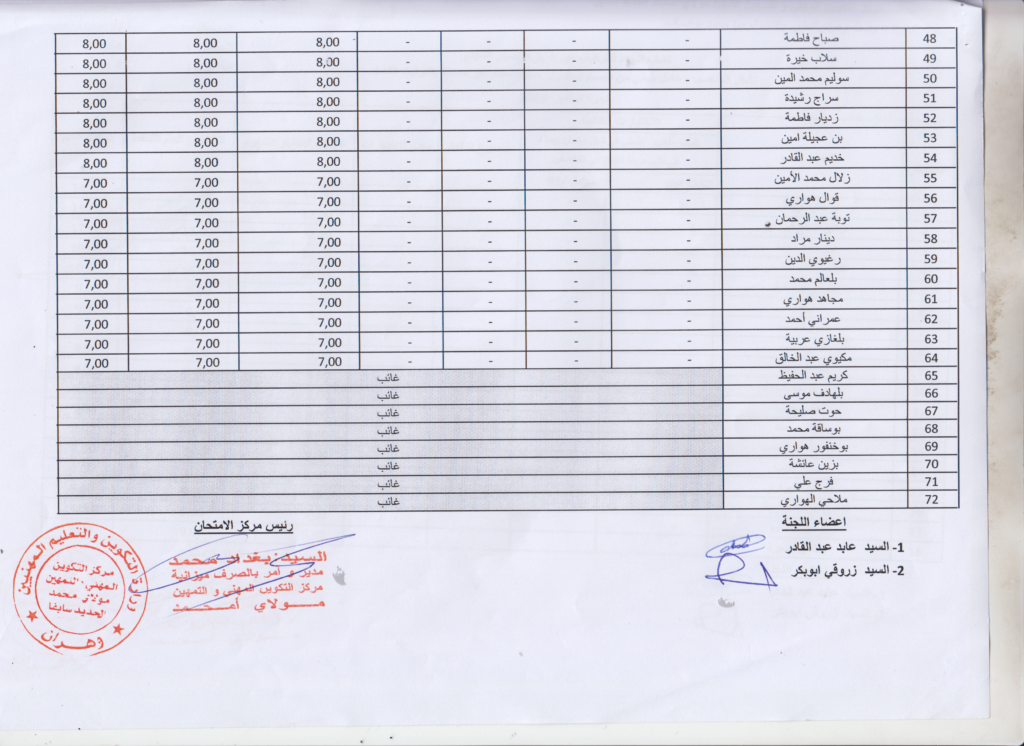 48 صباح فاطمة - - - - 8,00 8,00 8,00
49 سلاب خيرة - - - - 8,00 8,00 8,00
50 سوليم محمد المين - - - - 8,00 8,00 8,00
51 سراج رشيدة - - - - 8,00 8,00 8,00
52 زديار فاطمة - - - - 8,00 8,00 8,00
53 بن عجيلة امين - - - - 8,00 8,00 8,00
54 خديم عبد القادر - - - - 8,00 8,00 8,00
55 زلال محمد الأمين - - - - 7,00 7,00 7,00
56 قوال هواري - - - - 7,00 7,00 7,00
57 توبة عبد الرحمان - - - - 7,00 7,00 7,00
58 دينار مراد - - - - 7,00 7,00 7,00
59 رغيوي الدين - - - - 7,00 7,00 7,00
60 بلعالم محمد - - - - 7,00 7,00 7,00
61 مجاهد هواري - - - - 7,00 7,00 7,00
62 عمراني أحمد - - - - 7,00 7,00 7,00
63 بلغازي عربية - - - - 7,00 7,00 7,00
64 مكيوي عبد الخالق - - - - 7,00 7,00 7,00
65 كريم عبد الحفيظ غائب
66 بلهادف موسى غائب
67 حوت صليحة غائب
68 بوساقة محمد غائب
69 بوخنفور هواري غائب
70 بزين عائشة غائب
71 فرج علي غائب
72 ملاحي الهواري غائب
اعضاء اللجنة
1- السيد عابد عبد القادر
2- السيد زروقي ابوبكر
رئيس مركز الامتحان
السيد: بغداد محمد
مدير و آمر بالصرف ميزانية
مركز التكوين المهني و التمهين
مولاي أمحمد
وزارة التكوين والتعليم المهنيين
مركز التكوين
المهني والتمهين
محمد
الحديد سابقا
وهران